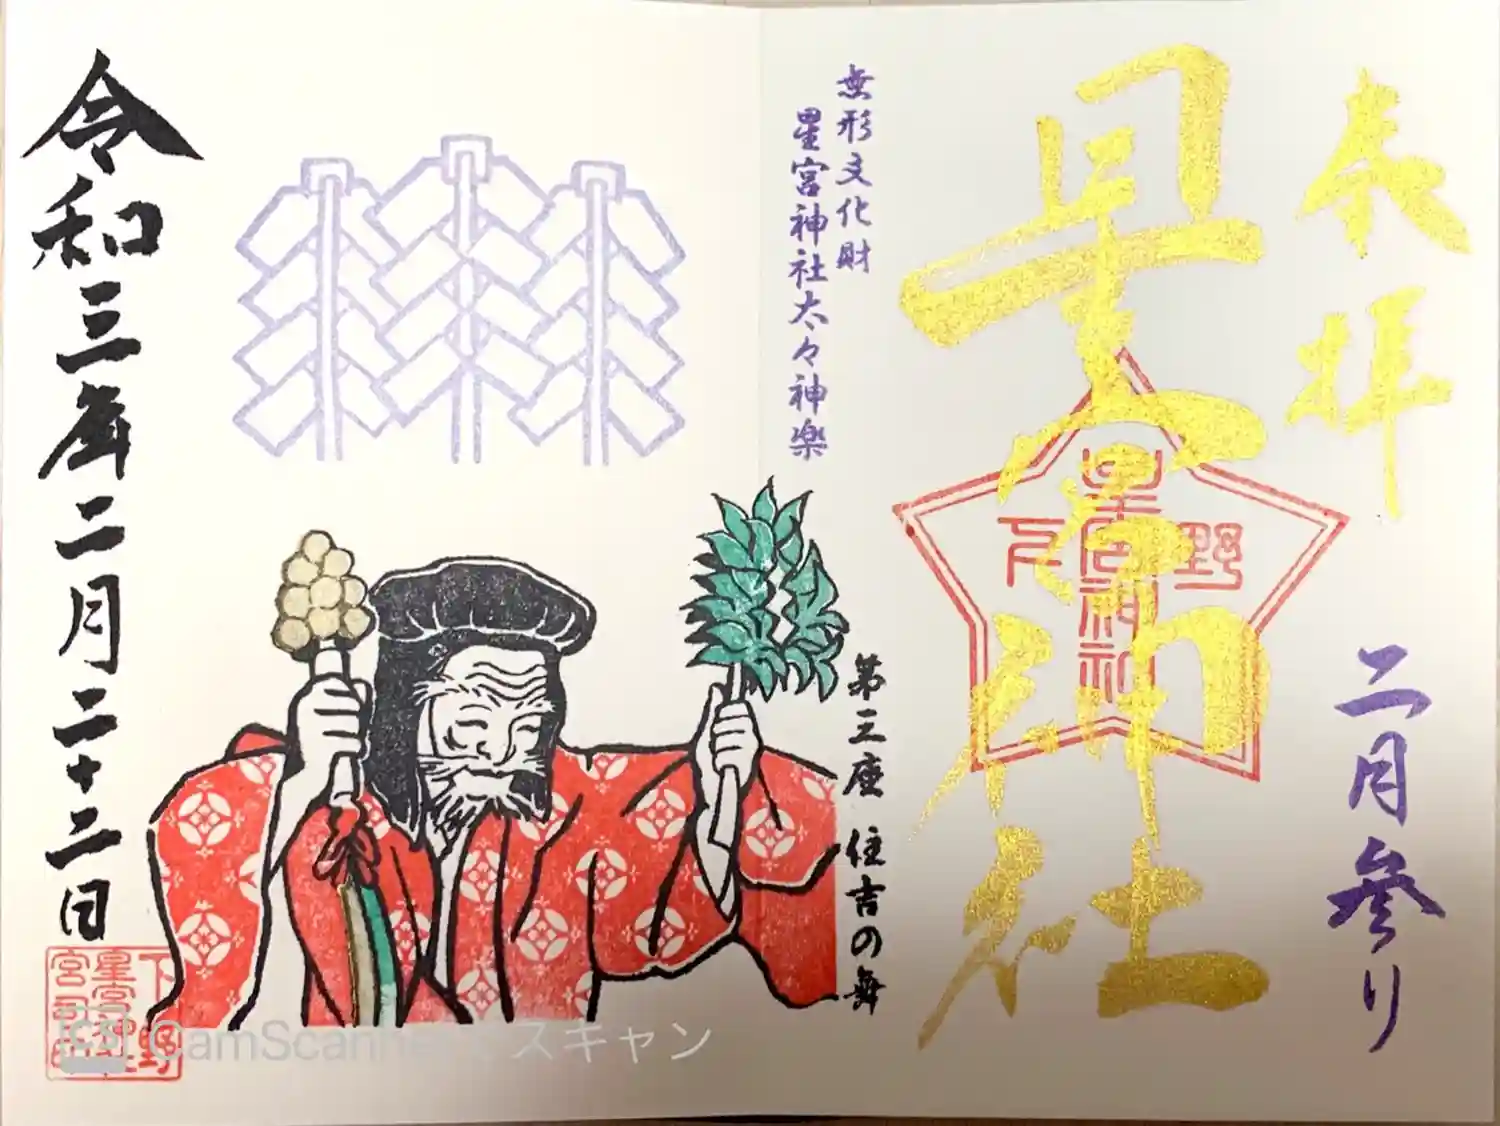 奉拝
二月参り
星宮神社
野
星宮神社
無形文化財
星宮神社太々神楽
第三座 住吉の舞
令和三年二月二十二日
下野
星宮神社
CamScannerでスキャン